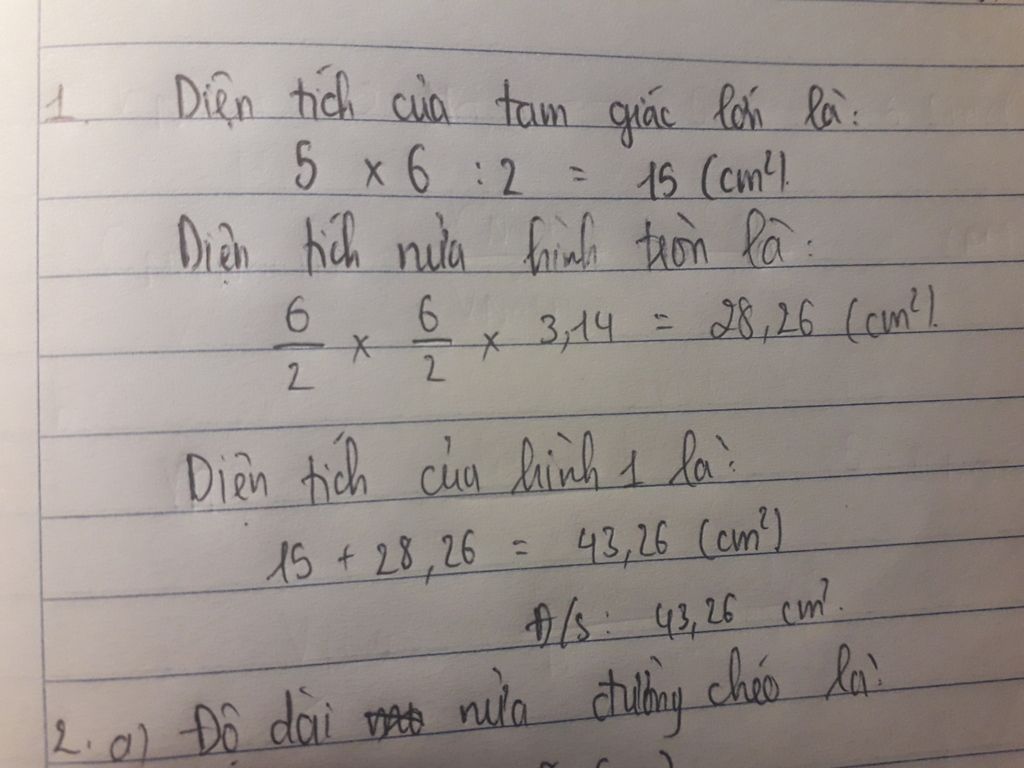 1. Diện tích của tam giác lớn là:
5 x 6 : 2 = 15 (cm²).
Diện tích nửa hình tròn là:
6/2 x 6/2 x 3,14 = 28,26 (cm²).
Diện tích của hình 1 là:
15 + 28,26 = 43,26 (cm²)
Đ/S: 43,26 cm².
2. a) Độ dài nửa đường chéo là: